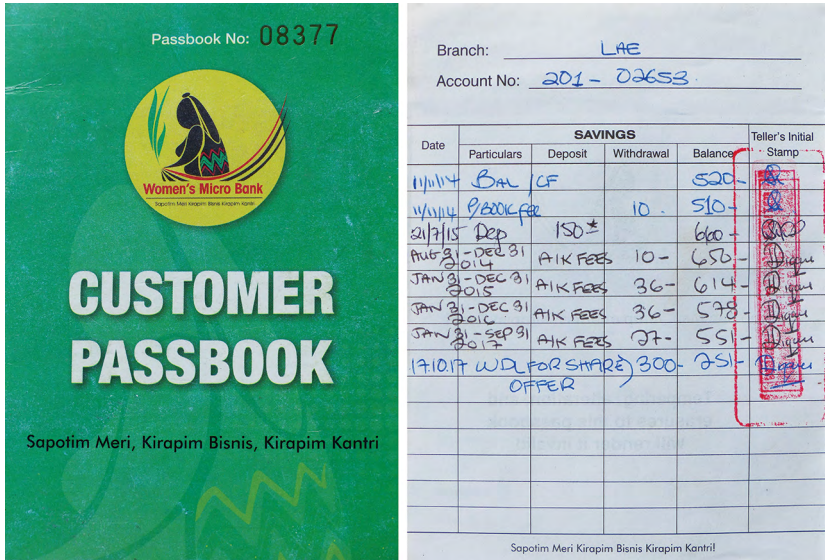 Passbook No: 08377
Women's Micro Bank
Sapotim Meri Kirapim Bisnis Kirapim Kantri
CUSTOMER
PASSBOOK
Sapotim Meri, Kirapim Bisnis, Kirapim Kantri
Branch: LAE
Account No: 201-02653.
SAVINGS
Date Particulars Deposit Withdrawal Balance Teller's Initial
Stamp
11/11/14 BAL /CF 520-
11/11/14 P/BOOK fee 10. 510-
21/7/15 Dep 150 660-
AUG 31-DEC 31
2014 A/K FEES 10- 650-
JAN 31-DEC 31
2015 A/K FEES 36- 614-
JAN 31-DEC 31
2016 A/K FEES 36- 578-
JAN 31-SEP 31
2017 A/K FEES 27- 551-
17.10.17 WDL FOR SHARE) 300- 251-
OFFER
Sapotim Meri Kirapim Bisnis Kirapim Kantri!